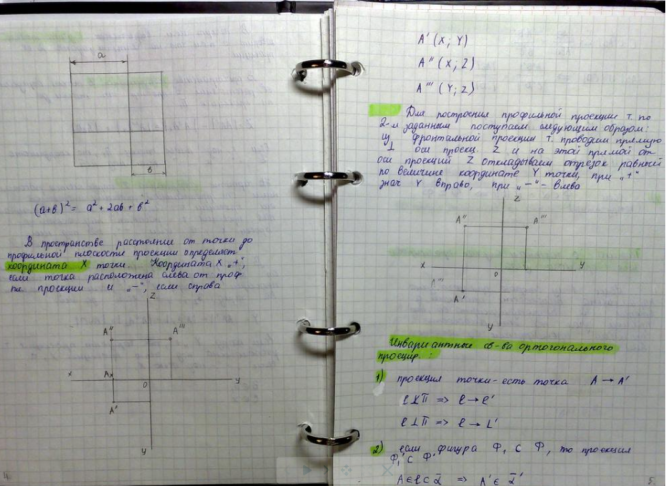 a
в
(a+в)² = a² + 2ab + в²
В пространстве расстояние от точки до
профильной плоскости проекции определяет
координата X точки. Координата X „+“,
если точка расположена слева от проф
пл. проекции и „-“, если справа
Z
A" A'''
x Aₓ O y
A'
y
A' (X; Y)
A" (X; Z)
A''' (Y; Z)
Для построения профильной проекции т. по
2-м заданным поступаем следующим образом:
из фронтальной проекции т. проводим прямую
⊥ оси проекц Z и на этой прямой от
оси проекций Z откладываем отрезок равный
по величине координате Y точки, при „+“
знач Y вправо, при „-“ - влево
Z
A" A'''
x O y
A'
y
Инвариантные св-ва ортогонального
проецир.:
1) проекция точки - есть точка A → A'
ℓ⊥̸П => ℓ → ℓ'
ℓ⊥П => ℓ → L'
2) если фигура Ф₁ ⊂ Ф, то проекция
Ф₁' ⊂ Ф'
A∈ℓ⊂α => A' ∈ α'
5